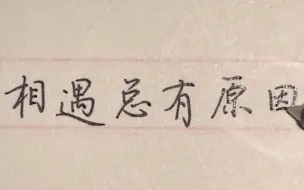 相遇总有原因